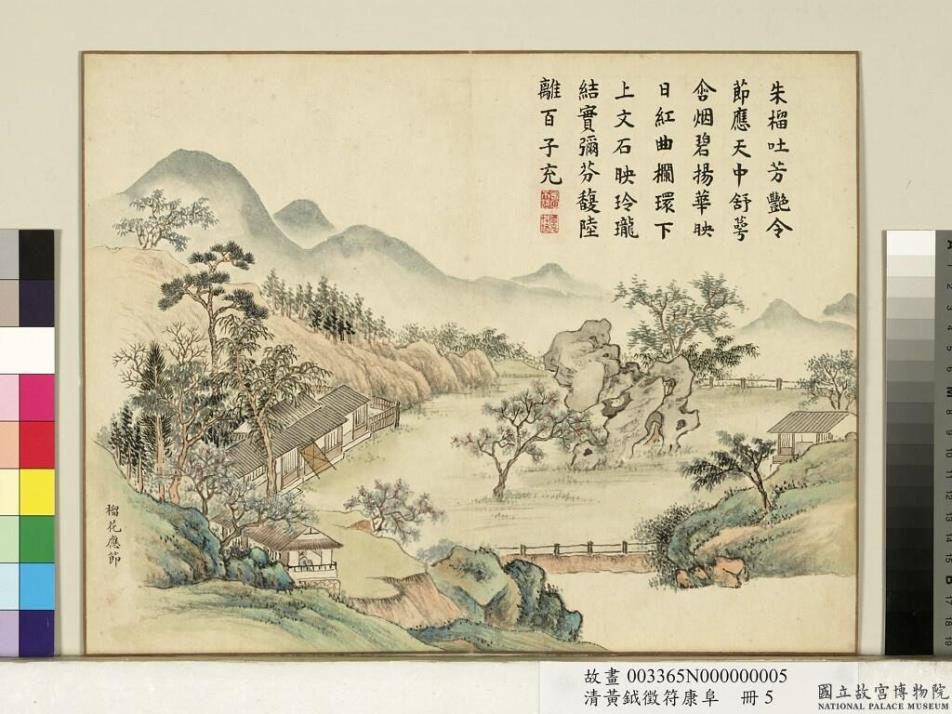 朱榴吐芳艷令
節應天中舒萼
含烟碧揚華映
日紅曲欄環下
上文石映玲瓏
結實彌芬馥陸
離百子充
榴花應節
故畫 003365N000000005
清黃鉞徵符康阜 冊 5
國立故宮博物院
NATIONAL PALACE MUSEUM